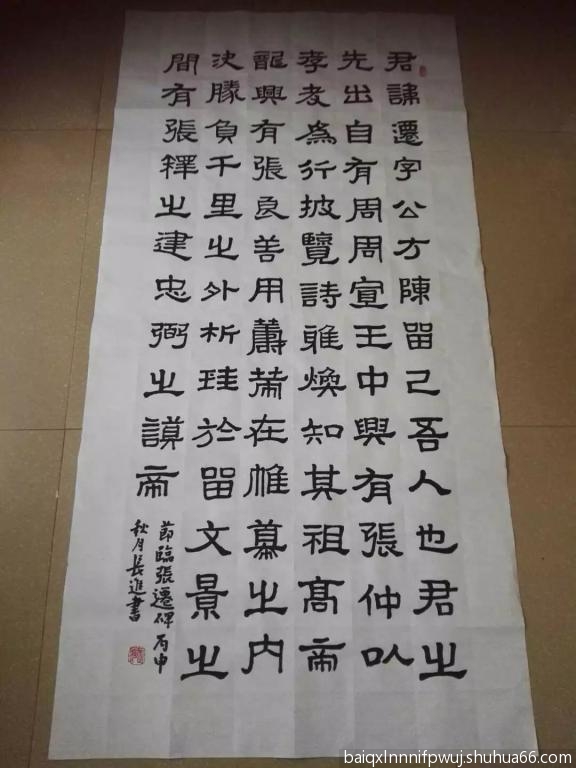 君諱遷字公方陳留己吾人也君之
先出自有周周宣王中興有張仲以
孝友為行披覽詩雅煥知其祖高帝
龍興有張良善用籌策在帷幕之内
決勝負千里之外析珪於留文景之
間有張釋之建忠弼之謨帝
節臨張遷碑丙申
秋月長進書
baiqxlnnnifpwuj.shuhua66.com